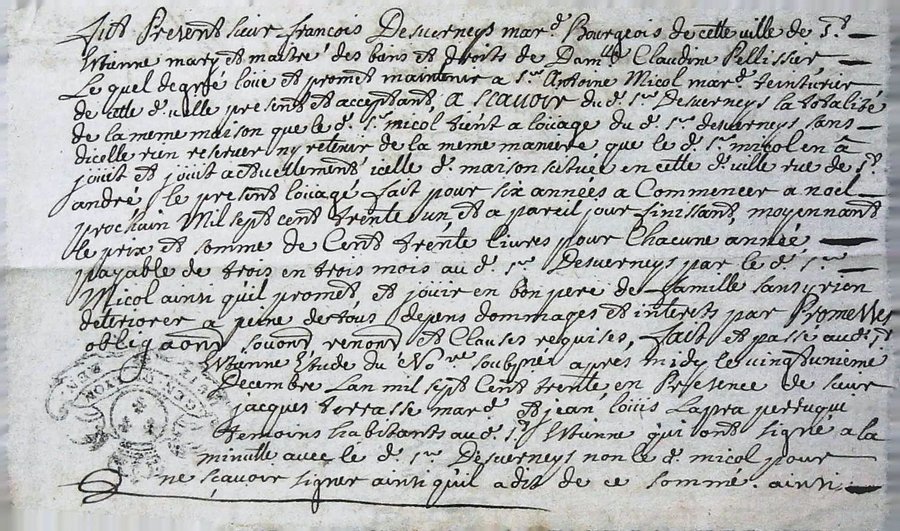 fut Present sieur françois Desverneys mar.d Bourgeois de cette ville de S.t
Etienne mary et maitre des bans et droits de Dam.lle Claudine Pellissier
Le quel de gré loüe et promet maintenir a S.r Antoine Micol mar.d teinturier
de cette d. ville present et acceptant, a scavoir du d. S.r Desverneys la totalité
de la meme maison que le d. S.r micol tient a loüage du d. S.r desverneys sans
dicelle rien reserver ny retenir de la meme maniere que le d. S.r micol en a
joüit et joüit actuellement icelle d. maison scituée en cette d. ville rue de S.t
andré le present loüage fait pour six années a Commencer a noel
prochain Mil sept cent trente un et a pareil jour finissant, moyennant
le prix et somme de Cent trente livres pour Chacune année
payable de trois en trois mois au d. S.r Desverneys par le d. S.r
Micol ainsi quil promet et joüir en bon pere de famille sans y rien
deteriorer a peine de tous depens dommages et interets par Promesses
obligaõns renonõns et Clauses requises, fait et passé aud. S.t
Etienne Etude du No.re soubsne apres midy le vingt unieme
Decembre Lan mil sept Cent trente en Presence de sieur
jacques terrasse mar.d et jean loüis Lapra perruqui
temoins habitants au d. S.t Etienne qui ont signé a la
minutte avec le d. S.r Desverneys non le d. micol pour
ne scavoir signer ainsi quil a dit de ce sommé. ainsi
GEN
LYON